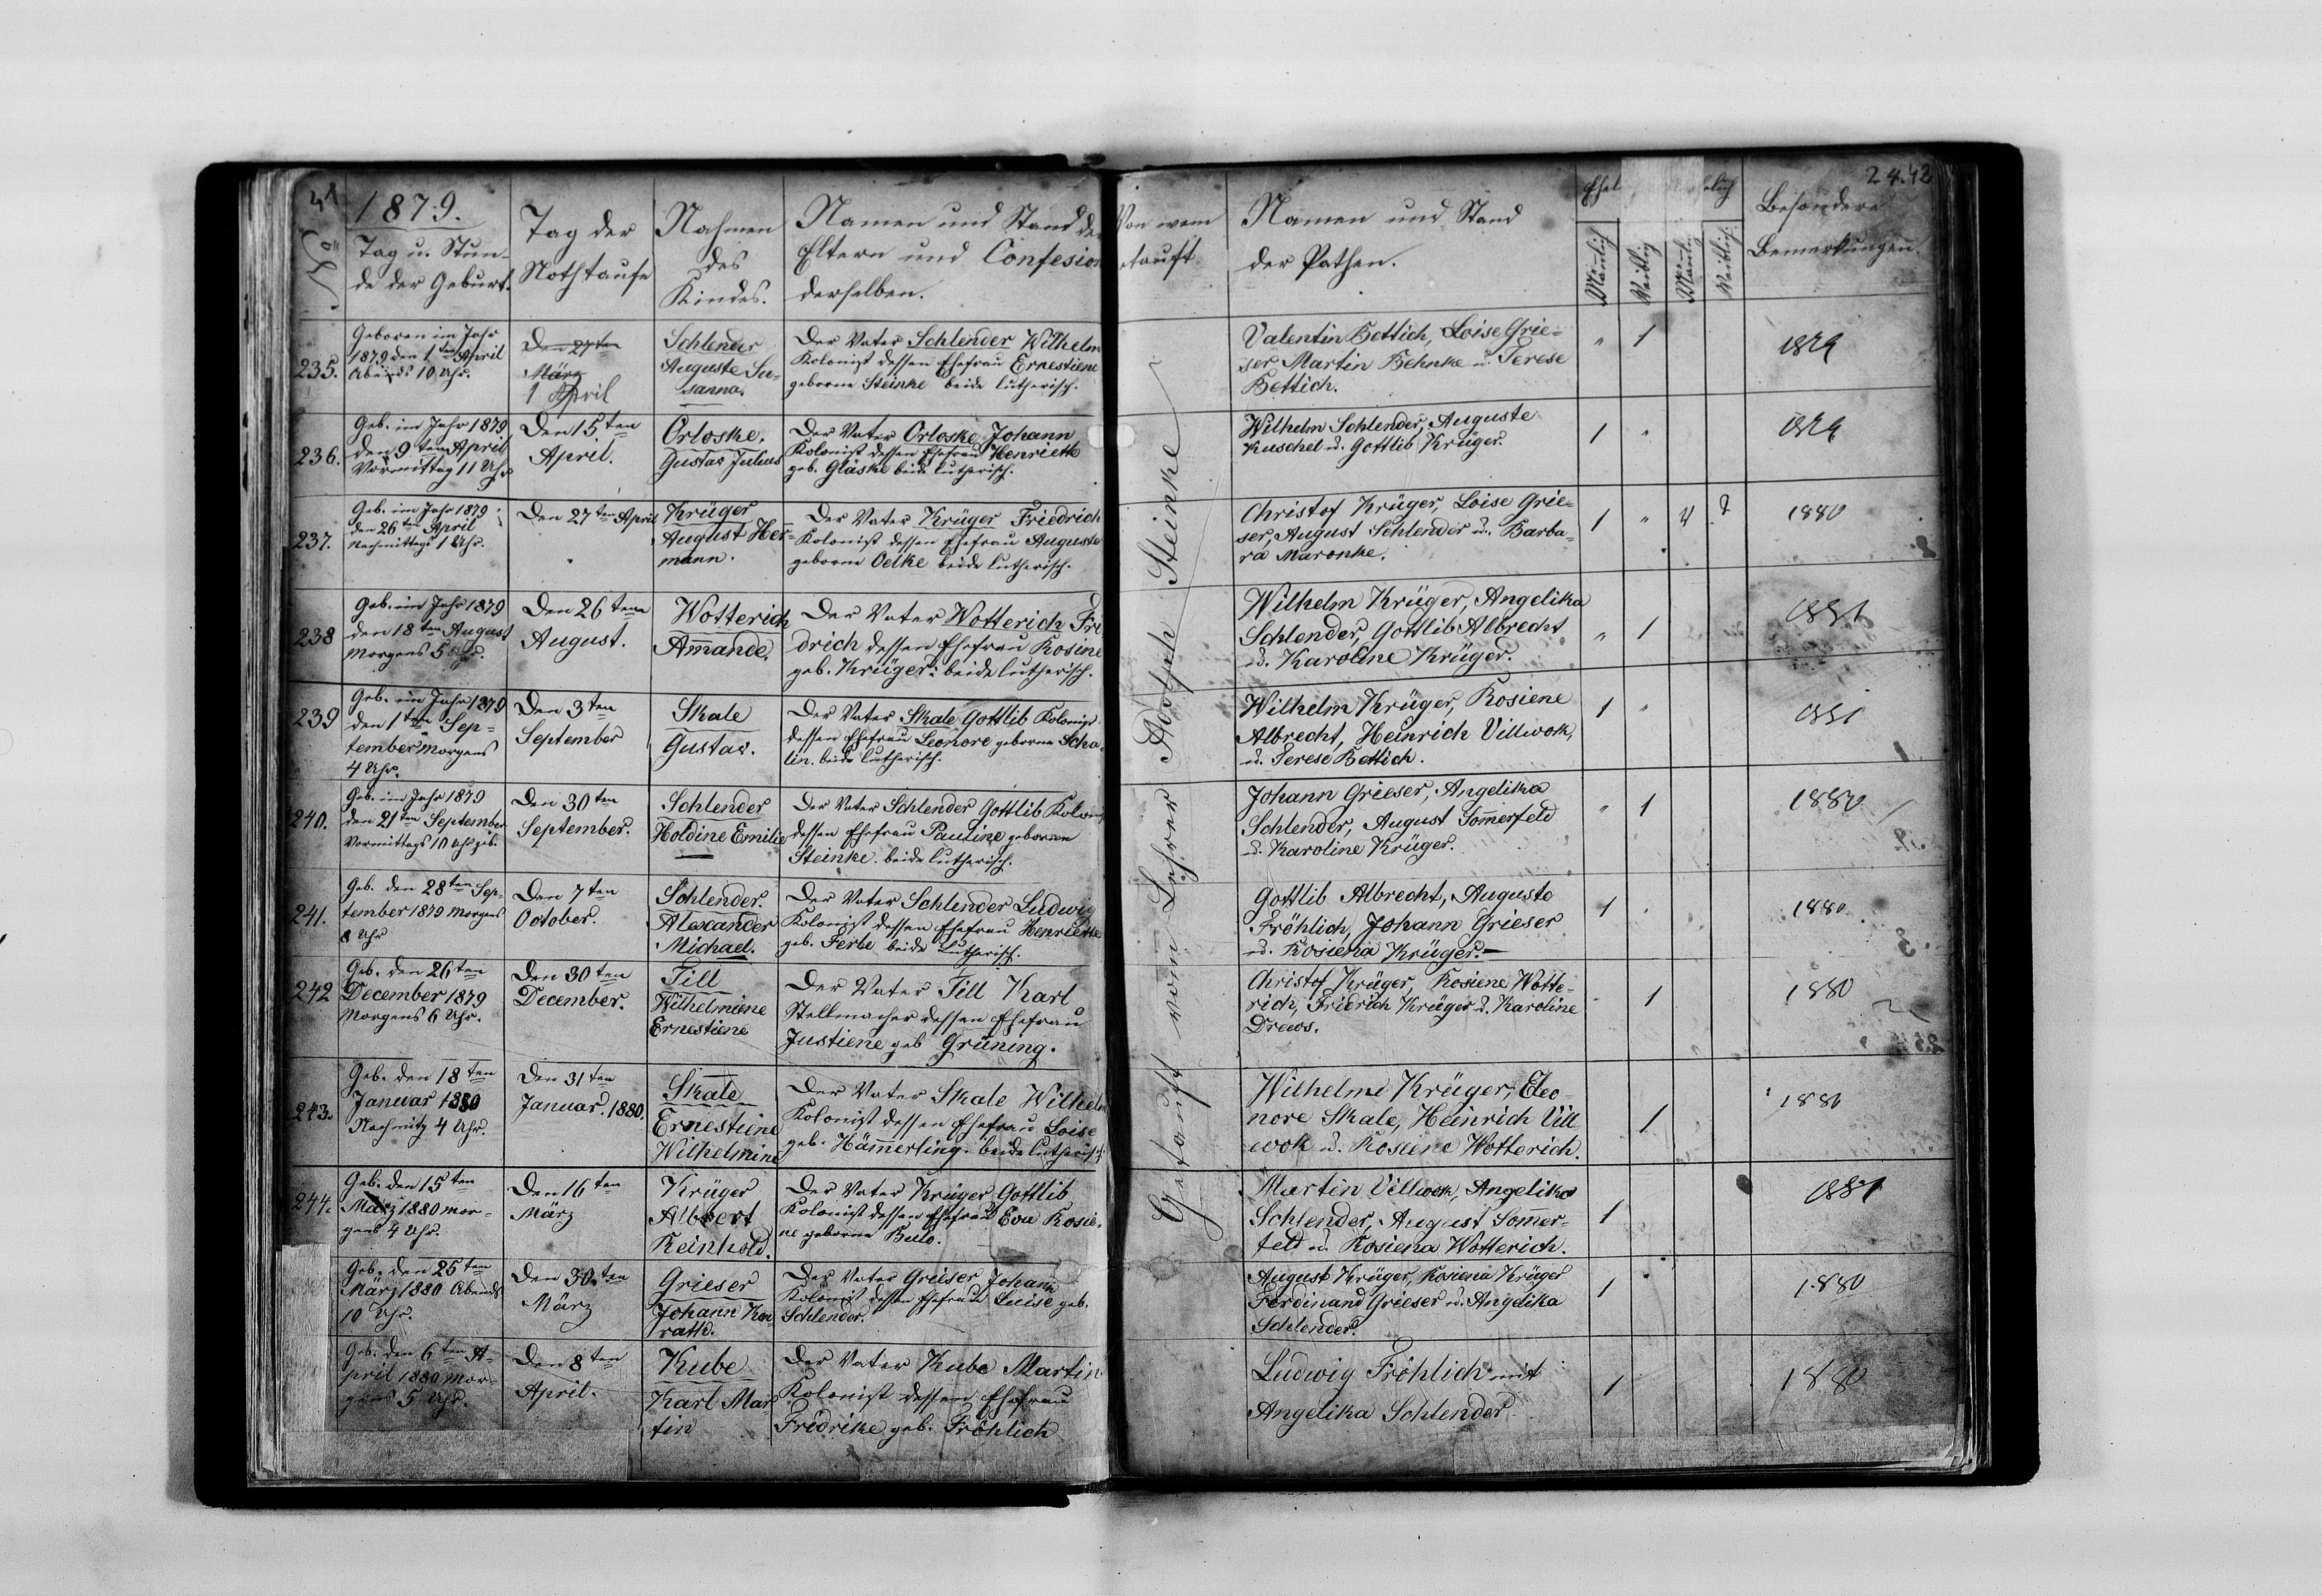 1879.
Tag u. Stun-
de der Geburt.
Tag der
Nothtaufe
Nahmen
des
Kindes.
Namen und Stand der
Eltern und Confesion
derselben.
235.
Geboren im Jahr
1879 den 1ten April
Abends 10 Uhr.
Den 27ten
März
1 April
Schlender
Auguste Su-
sanna.
Der Vater Schlender Wilhelm
Kolonist dessen Ehefrau Ernestiene
geborne Steinke beide lutherisch.
236.
Geb. im Jahr 1879
den 9ten April
Vormittag 11 Uhr
Den 15ten
April.
Orloske.
Gustav Julius
Der Vater Orloske Johann
Kolonist dessen Ehefrau Henriette
geb. Gläske beide lutherisch.
237.
Geb. im Jahr 1879
den 26ten April
Nachmittags 1 Uhr.
Den 27ten April
Krüger
August Her-
mann.
Der Vater Krüger Friedrich
Kolonist dessen Ehefrau Auguste
geborne Oelke beide lutherisch.
238
Geb. im Jahr 1879
den 18ten August
Morgens 5 Uhr.
Den 26ten
August.
Wotterich
Amande.
Der Vater Wotterich Fri
drich dessen Ehefrau Rosine
geb. Krüger. beide lutherisch.
239
Geb. im Jahr 1879
den 1ten Sep-
tember morgens
4 Uhr.
Den 3ten
September
Skale
Gustav.
Der Vater Skale Gottlib Kolonist
dessen Ehefrau Leonore geborne Scha
lin. beide lutherisch.
240.
Geb. im Jahr 1879
den 21ten September
Vormittags 10 Uhr geb.
Den 30ten
September.
Schlender
Holdine Emilie
Der Vater Schlender Gottlib Kolonist
dessen Ehefrau Pauline geborne
Steinke. beide lutherisch.
241.
Geb. den 28ten Sep-
tember 1879 morgens
8 Uhr
Den 7ten
October.
Schlender.
Alexander
Michael.
Der Vater Schlender Ludwig
Kolonist dessen Ehefrau Henriette
geb. Ferbe beide Lutherisch.
242
Geb. den 26ten
December 1879
Morgens 6 Uhr.
Den 30ten
December.
Till
Wilhelmiene
Ernestiene
Der Vater Till Karl
Stellmacher dessen Ehefrau
Justiene geb Grüning.
243.
Geb. den 18ten
Januar 1880
Nachmitg 4 Uhr.
Den 31ten
Januar. 1880.
Skale
Ernestiene
Wilhelmine
Der Vater Skale Wilhelm
Kolonist dessen Ehefrau Loise
geb. Hämerling. beide lutherisch
244.
Geb. den 15ten
März 1880 mor-
gens 4 Uhr.
Den 16ten
März
Krüger
Albert
Reinhold.
Der Vater Krüger Gottlib
Kolonist dessen Ehefrau Eva Rosie-
ne geborne
Geb. den 25ten
März 1880 Abends
10 Uhr.
Den 30ten
März
Grieser
Johann Kon-
rattd.
Der Vater Grieser Johann
Kolonist dessen Ehefrau Luise geb.
Schlender.
Geb. den 6ten A-
pril 1880 Mor-
gens 5 Uhr.
Den 8ten
April.
Kube
Karl Mar
tin
Der Vater Kube Martin
Kolonist dessen Ehefrau
Fridrike geb. Fröhlich
Von wem
etauft
Namen und Stand
der Pathen.
Mänlich
Weiblig
Mänlig
Weiblich
Besondere
Bemerkungen.
24.42
Getauft vom Lehrer Adolph Steinke
Valentin Bettich, Loise Grie-
ser, Martin Behnke u. Terese
Bettich.
" 1
1879
Wilhelm Schlender, Auguste
Kuschel u. Gottlib Krüger.
1 "
1879
Christof Krüger, Loise Grie-
ser, August Schlender u. Barba-
ra Maronke.
1 " 4
1880
Wilhelm Krüger, Angelika
Schlender, Gottlib Albrecht
u. Karoline Krüger.
" 1
1881
Wilhelm Krüger, Rosiene
Albrecht, Heinrich Villwok,
u. Terese Bettich.
1 "
1881
Johann Grieser, Angelika
Schlender, August Somerfeld
u. Karoline Krüger.
" 1
1880
Gottlib Albrecht, Auguste
Fröhlich, Johann Grieser
u. Rosiena Krüger.
1
1880
Christof Krüger, Rosiene Wotte-
rich, Fridrich Krüger u. Karoline
Drews.
1
1880
Wilhelmi Krüger, Eleo-
nore Skale, Heinrich Vill
wok u. Rosiene Wotterich.
1
1880
Martin Villwok, Angelika
Schlender, August Somer-
feld u. Rosiena Wotterich.
1
1881
August Krüger, Rosiena Krüger
Ferdinand Grieser u. Angelika
Schlender.
1
1880
Ludwig Fröhlich mit
Angelika Schlender
1
1880